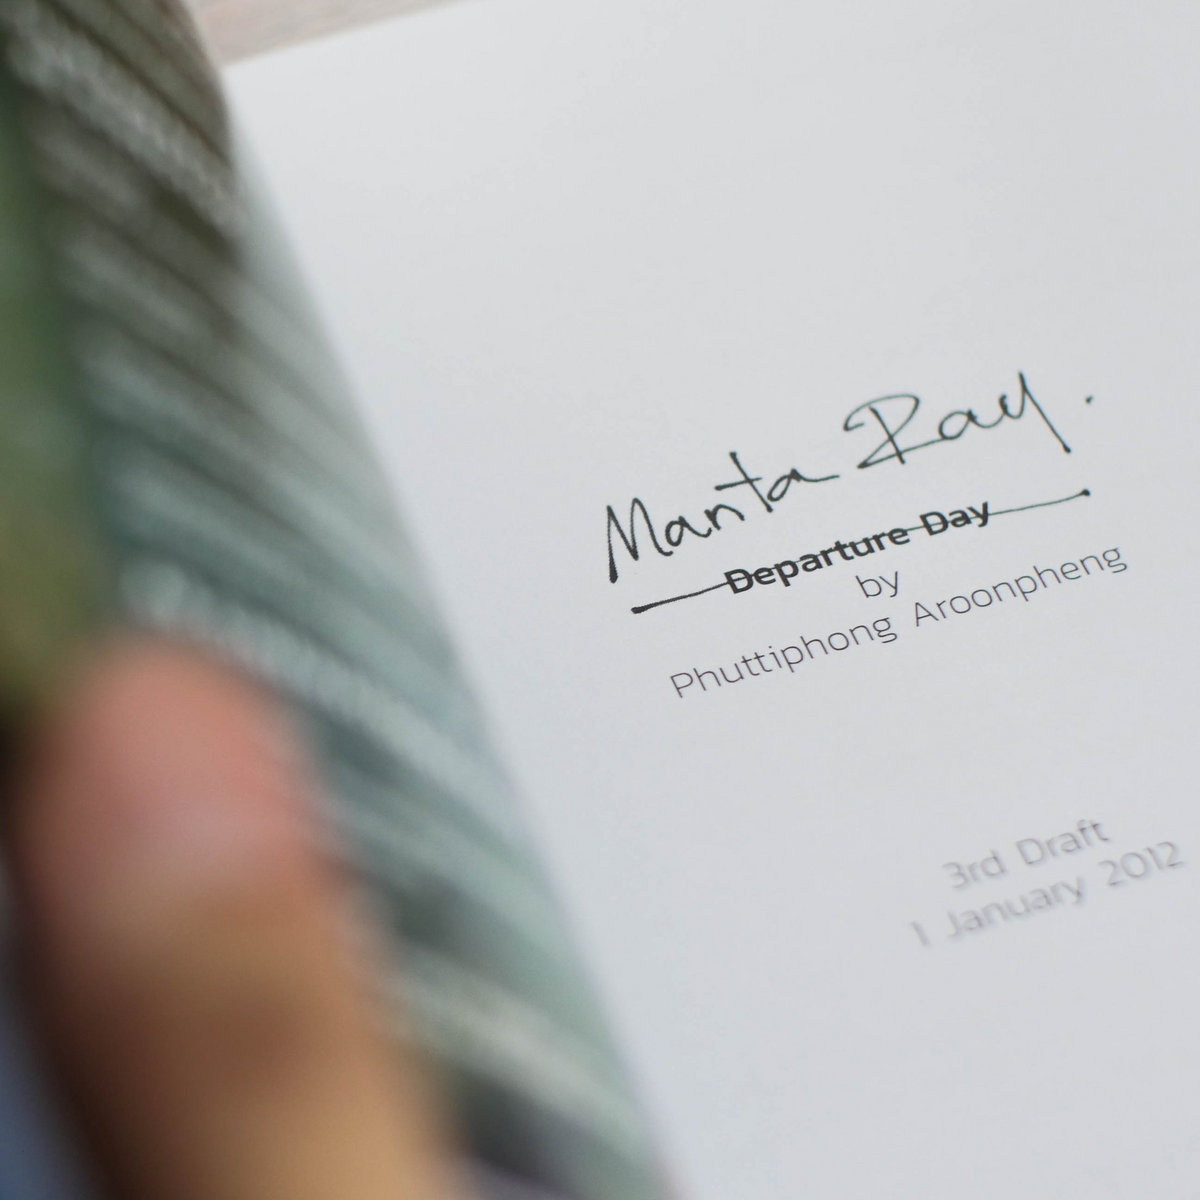 Manta Ray.
Departure Day
by
Phuttiphong Aroonpheng
3rd Draft
1 January 2012